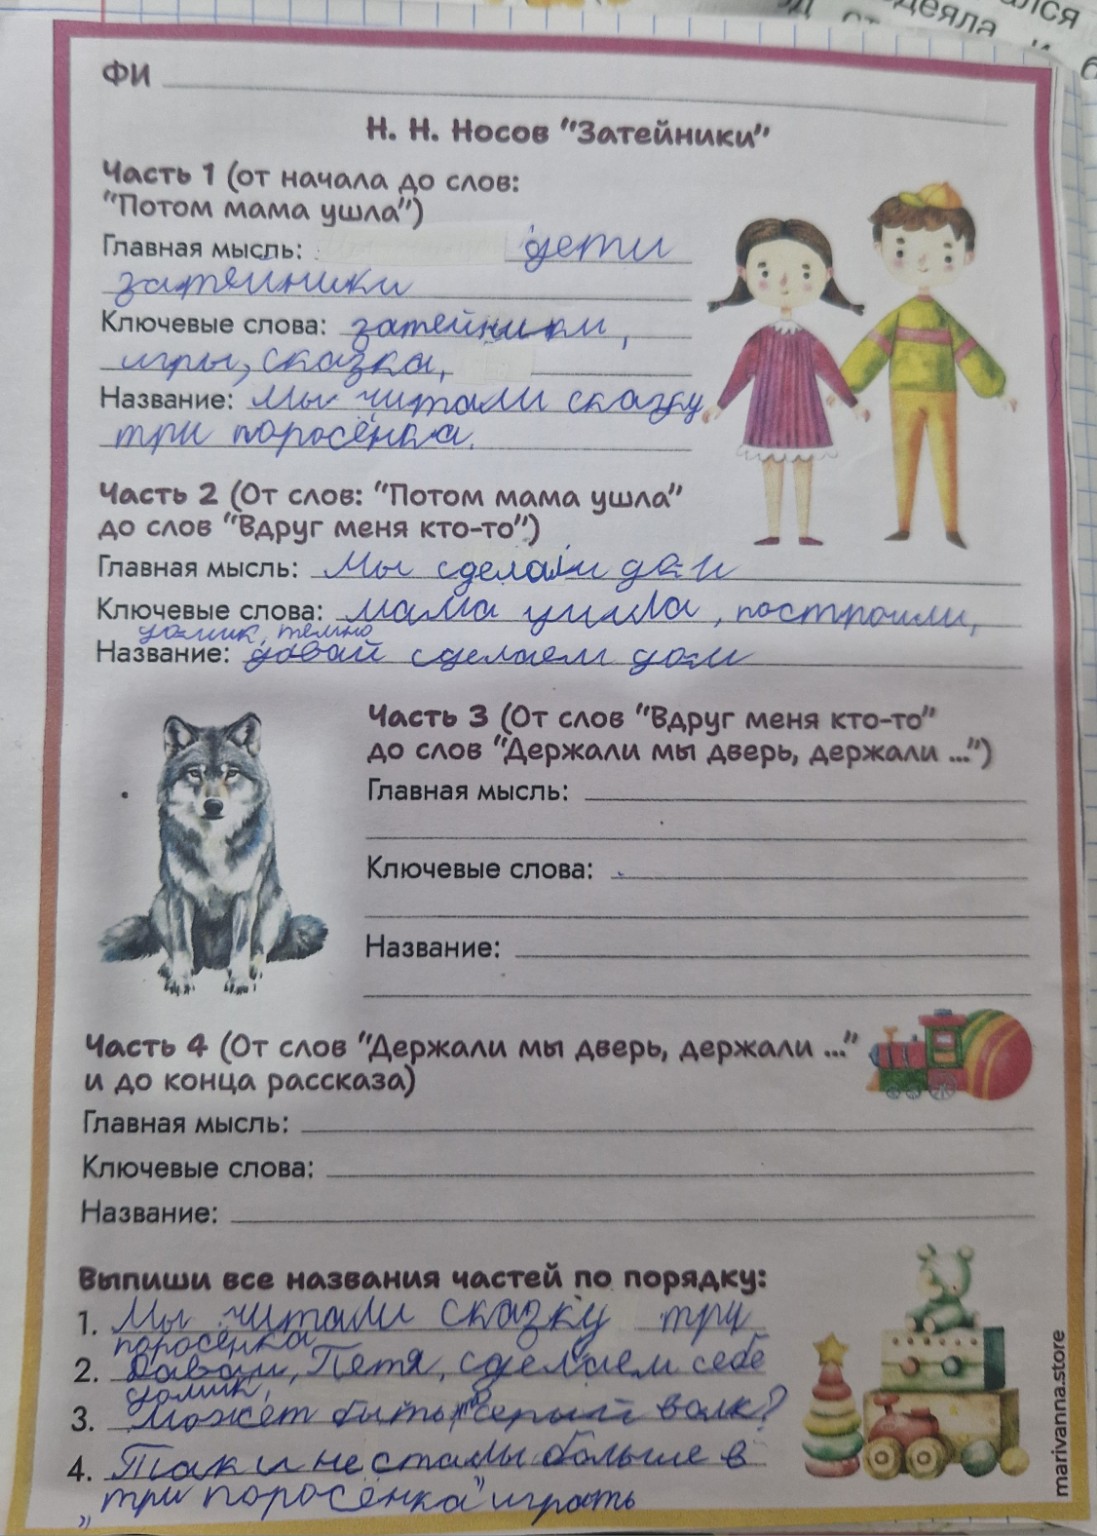 ФИ
Н. Н. Носов "Затейники"
Часть 1 (от начала до слов:
"Потом мама ушла")
Главная мысль: дети
затейники
Ключевые слова: затейники,
игры, сказка,
Название: Мы читали сказку
три поросёнка.
Часть 2 (От слов: "Потом мама ушла"
до слов "Вдруг меня кто-то")
Главная мысль: Мы сделали дом
Ключевые слова: мама ушла, построили,
домик, темно
Название: давай сделаем дом
Часть 3 (От слов "Вдруг меня кто-то"
до слов "Держали мы дверь, держали ...")
Главная мысль:
Ключевые слова:
Название:
Часть 4 (От слов "Держали мы дверь, держали ..."
и до конца рассказа)
Главная мысль:
Ключевые слова:
Название:
Выпиши все названия частей по порядку:
1. Мы читали сказку три
поросёнка
2. Давай, Петя, сделаем себе
домик,
3. Может быть, серый волк?
4. Так и не стали больше в
„три поросёнка" играть
marivanna.store